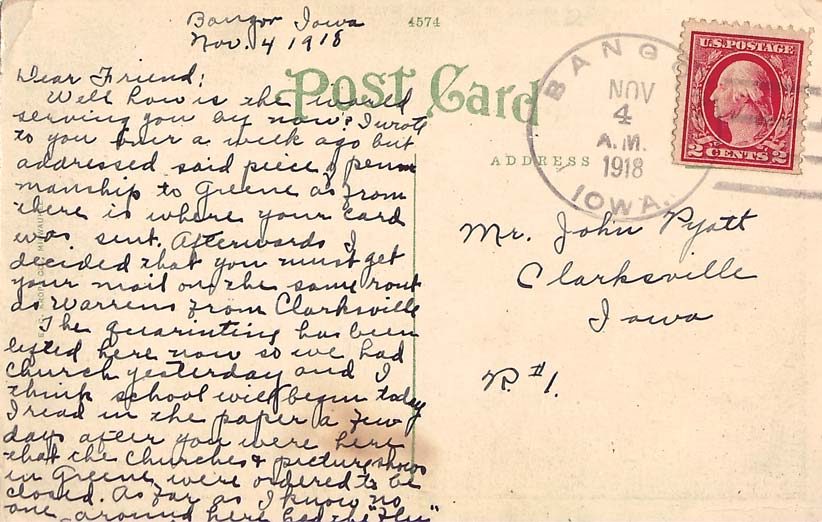 Bangor Iowa
Nov. 4 1918
4574
Dear Friend:
Well how is the world
serving you by now? I wrote
to you over a week ago but
addressed said piece of penm
manship to Greene as from
there is where your card
was sent. Afterwards I
decided that you must get
your mail on the same rout
as Warrens from Clarksville
The quarinting has been
lifted here now so we had
church yesterday and I
think school will begin today
I read in the paper a few
days after you were here
that the churches & picture shows
in Greene were ordered to be
closed. As far as I know no
one around here had the "Flu"
Post Card
ADDRESS
BANG
NOV
4
A.M.
1918
IOWA.
U.S. POSTAGE
2 CENTS 2
Mr. John Pyatt
Clarksville
Iowa
R. #1.